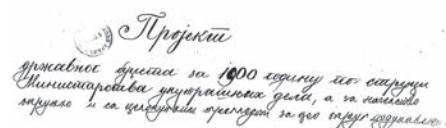 Пројект
државног буџета за 1900 годину по струци
Министарства унутрашњих дела, а за начелство
окружно и са целокупним прегледом за цео округ подунавски